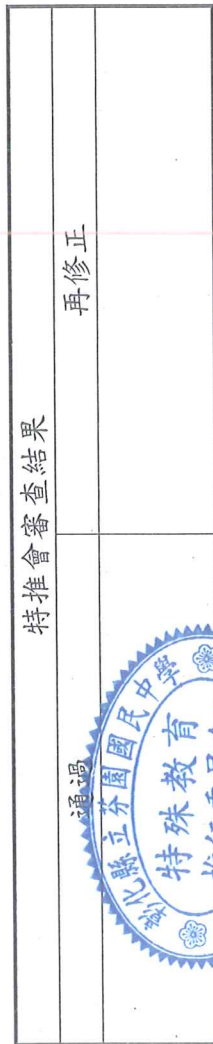 特推會審查結果
通過
再修正
彰化縣立芬園國民中學
特殊教育